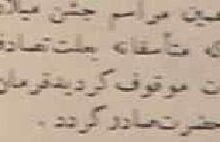 مراسم جشن میلاد
متأسفانه بعلت تصادف
موقوف گردید فرمان
حضرت صادر گردد .